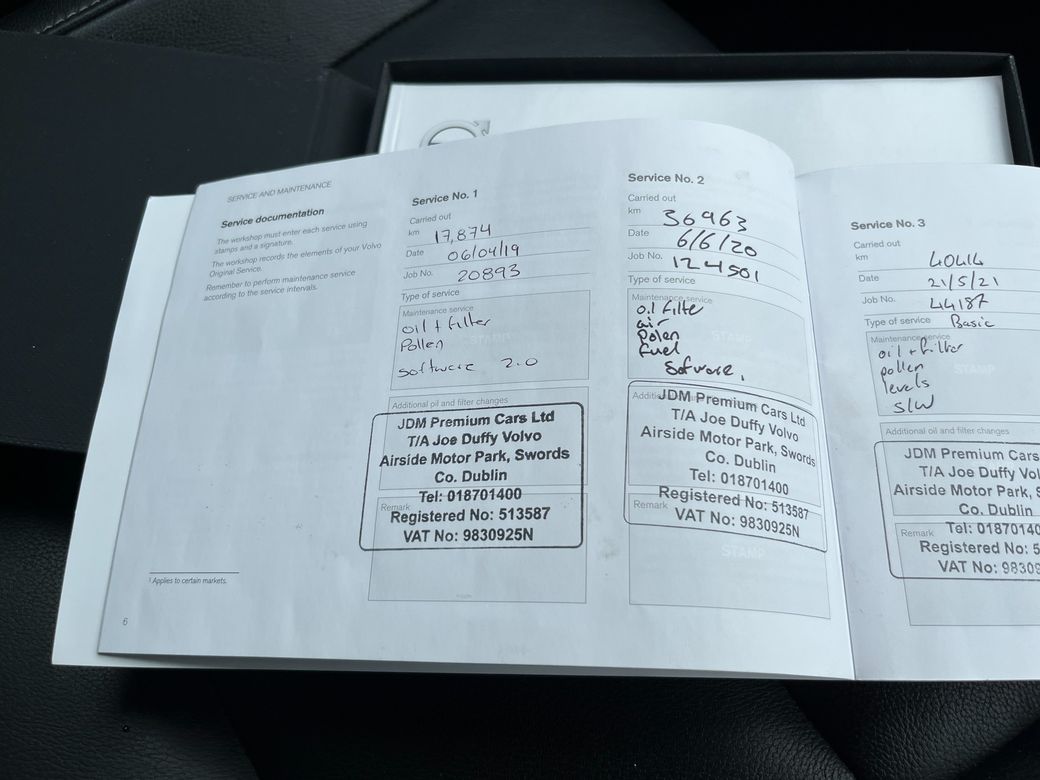 SERVICE AND MAINTENANCE
Service documentation
The workshop must enter each service using
stamps and a signature.
The workshop records the elements of your Volvo
Original Service.
Remember to perform maintenance service
according to the service intervals.
1 Applies to certain markets.
6
Service No. 1
Carried out
km 17,874
Date 06/04/19
Job No. 20893
Type of service
Maintenance service
oil + filter
Pollen
software 2.0
STAMP
Additional oil and filter changes
JDM Premium Cars Ltd
T/A Joe Duffy Volvo
Airside Motor Park, Swords
Co. Dublin
Tel: 018701400
Remark
Registered No: 513587
VAT No: 9830925N
Service No. 2
Carried out
km 36963
Date 6/6/20
Job No. 124501
Type of service
Maintenance service
oil filter
air
Polen
fuel
Sofware,
STAMP
JDM Premium Cars Ltd
T/A Joe Duffy Volvo
Airside Motor Park, Swords
Co. Dublin
Tel: 018701400
Remark
Registered No: 513587
VAT No: 9830925N
STAMP
Service No. 3
Carried out
km 40414
Date 21/5/21
Job No. 44187
Type of service Basic
Maintenance service
oil + filter
pollen
levels
S/W
STAMP
Additional oil and filter changes
JDM Premium Cars
T/A Joe Duffy Vol
Airside Motor Park, S
Co. Dublin
Remark
Tel: 01870140
Registered No: 5
VAT No: 98309